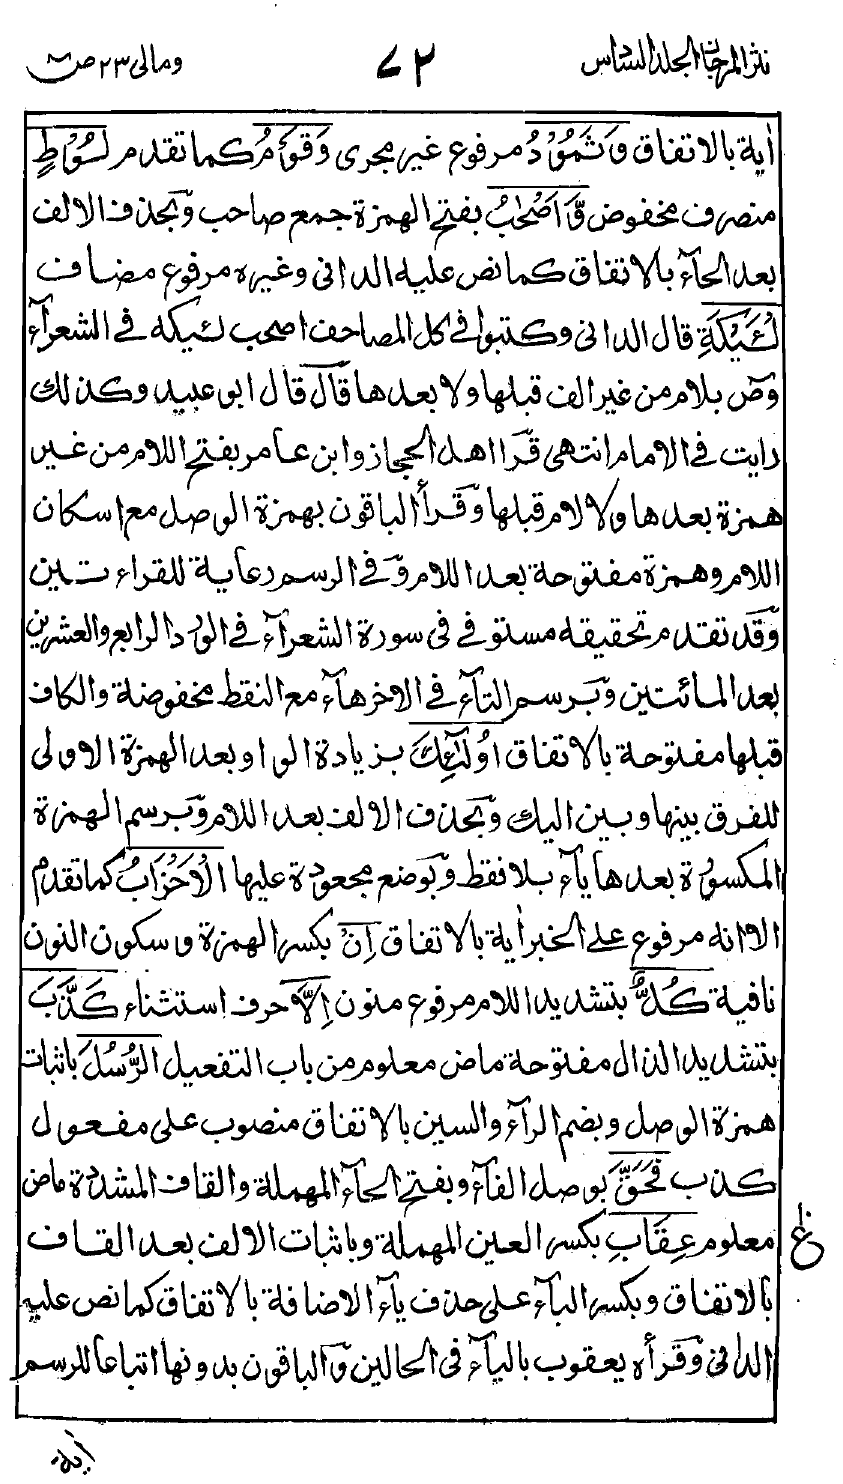 نثر المرجان المجلد السادس
٧٢
ومالى ٢٣ ص
اٰية بالاتفاق وَثَمُوْدُ مرفوع غير مجرى وَقَوْمُ كما تقدم لُوْطٍ
منصرف مخفوض وَّاَصْحٰبُ بفتح الهمزة جمع صاحب وبحذف الالف
بعد الحآء بالاتفاق كما نص عليه الدانى وغيره مرفوع مضاف
لْئَيْكَةِ قال الدانى وكتبوا فى كل المصاحف اصحب لئيكه فى الشعرآء
وصٓ بلام من غير الف قبلها ولا بعدها قال قال ابو عبيد وكذلك
رايت فى الامام انتهى قرا اهل الحجاز وابن عامر بفتح اللام من غير
همزة بعدها ولا لام قبلها وقرأ الباقون بهمزة الوصل مع اسكان
اللام وهمزة مفتوحة بعد اللام وفى الرسم رعاية للقراءتين
وقد تقدم تحقيقه مستوفى فى سورة الشعرآء فى الورد الرابع والعشرين
بعد المائتين وبرسم التآء فى الاخر هآء مع النقط مخفوضة والكاف
قبلها مفتوحة بالاتفاق اُولٰٓئِكَ بزيادة الواو بعد الهمزة الاولى
للفرق بينها وبين اليك وبحذف الالف بعد اللام وبرسم الهمزة
المكسورة بعدها يآء بلا نقط وبوضع مجعودة عليها الْاَحْزَابُ كما تقدم
الا انه مرفوع على الخبر اٰية بالاتفاق اِنْ بكسر الهمزة وسكون النون
نافية كُلٌّ بتشديد اللام مرفوع منون اِلَّا حرف استثناء كَذَّبَ
بتشديد الذال مفتوحة ماض معلوم من باب التفعيل الرُّسُلَ باثبات
همزة الوصل وبضم الرآء والسين بالاتفاق منصوب على مفعول
كذب فَحَقَّ بوصل الفآء وبفتح الحآء المهملة والقاف المشددة ماض
معلوم عِقَابِ بكسر العين المهملة وباثبات الالف بعد القاف
بالاتفاق وبكسر البآء على حذف يآء الاضافة بالاتفاق كما نص عليه
الدانى وقرأه يعقوب باليآء فى الحالين والباقون بدونها اتباعا للرسم
اٰية